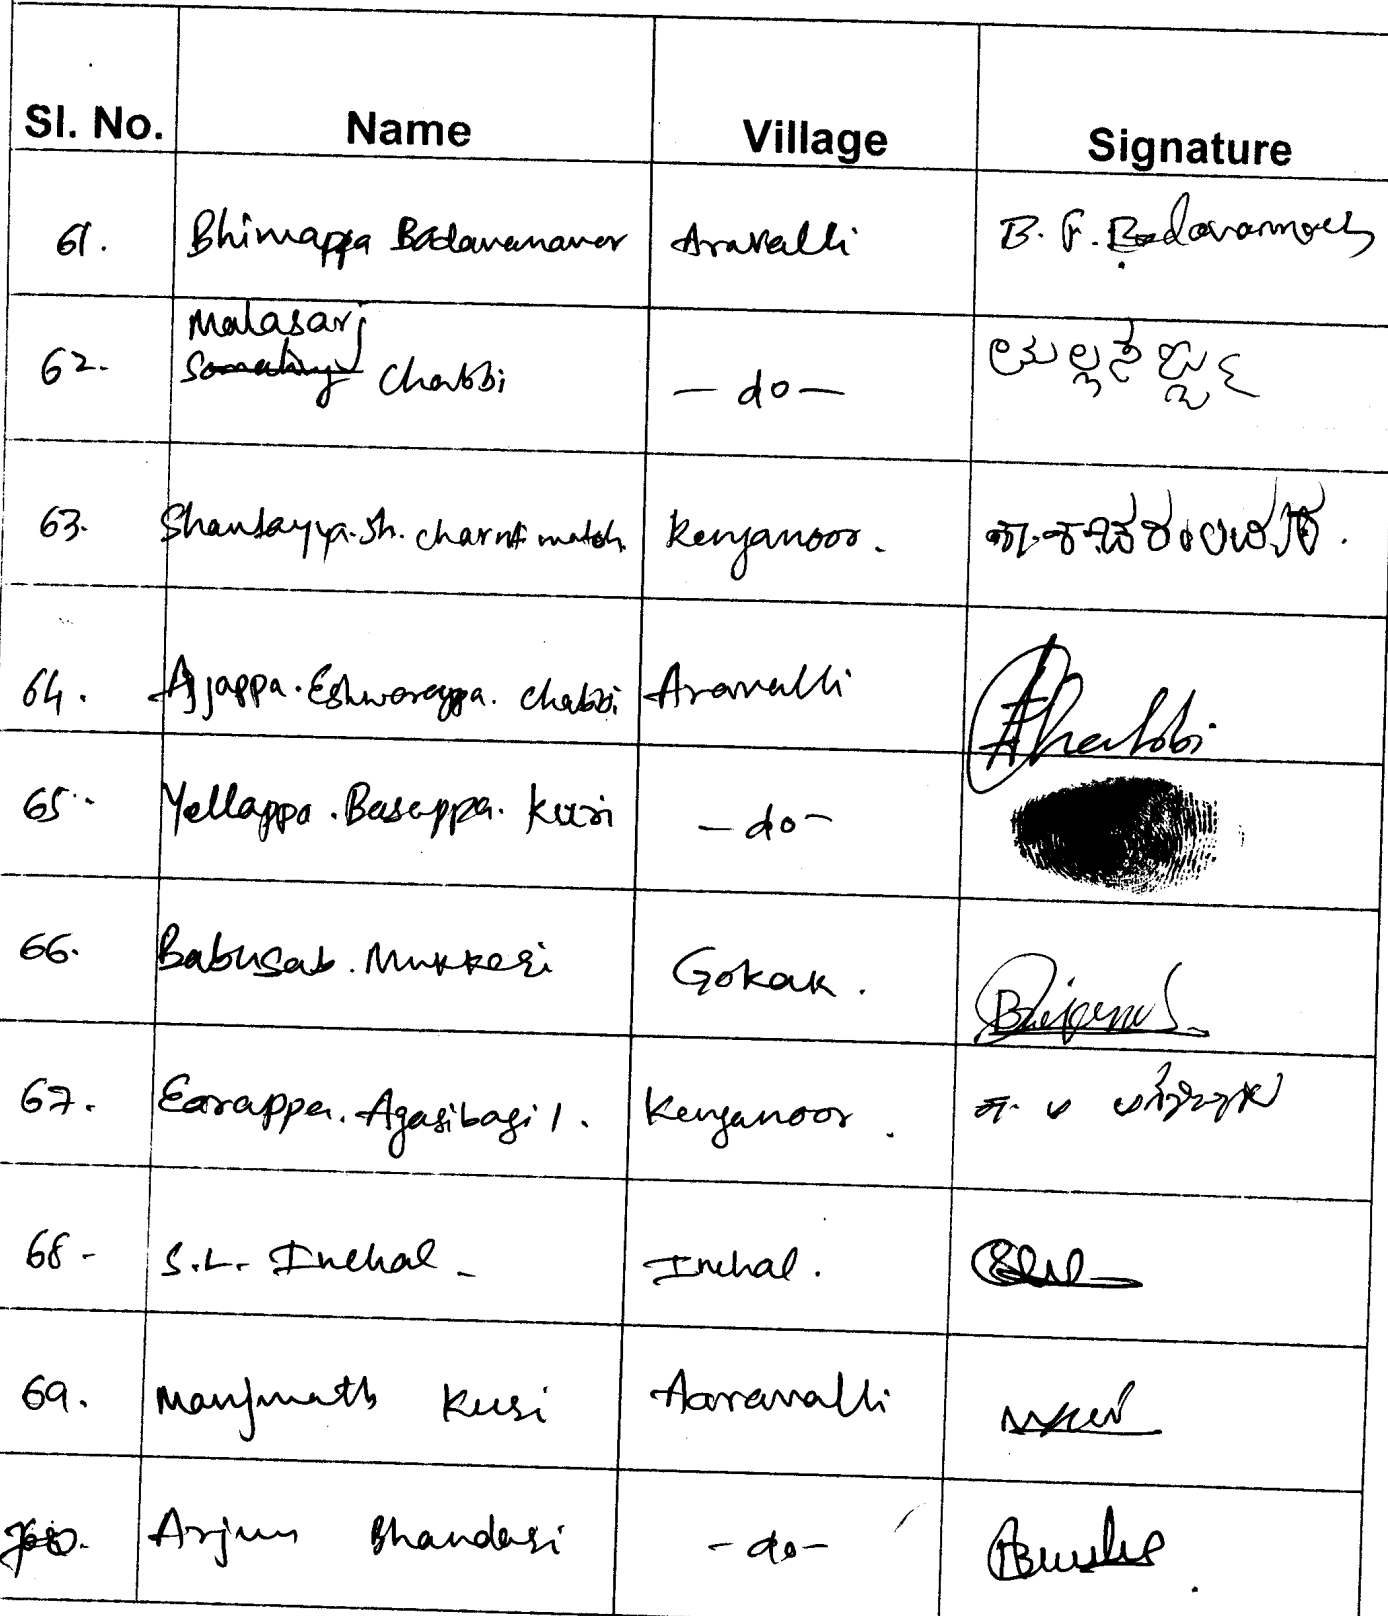 Sl. No. Name Village Signature
61. Bhimappa Badavanavar Aravalli B. F. Badavannavar
Malasarj
62. Chabbi - do -
63. Shantayya. Sh. charntimatoh. Kenganoor.
64. Ajjappa. Eshwarappa. Chabbi Aravalli AChabbi
65. Yellappa. Basappa. Kuri - do -
66. Babusab. Mukkeri Gokak.
67. Earappa. Agasibagil. Kenganoor.
68 - S.L. Inchal - Inchal.
69. Manjunath Kuri Aaravalli
70. Arjun Bhandari - do -